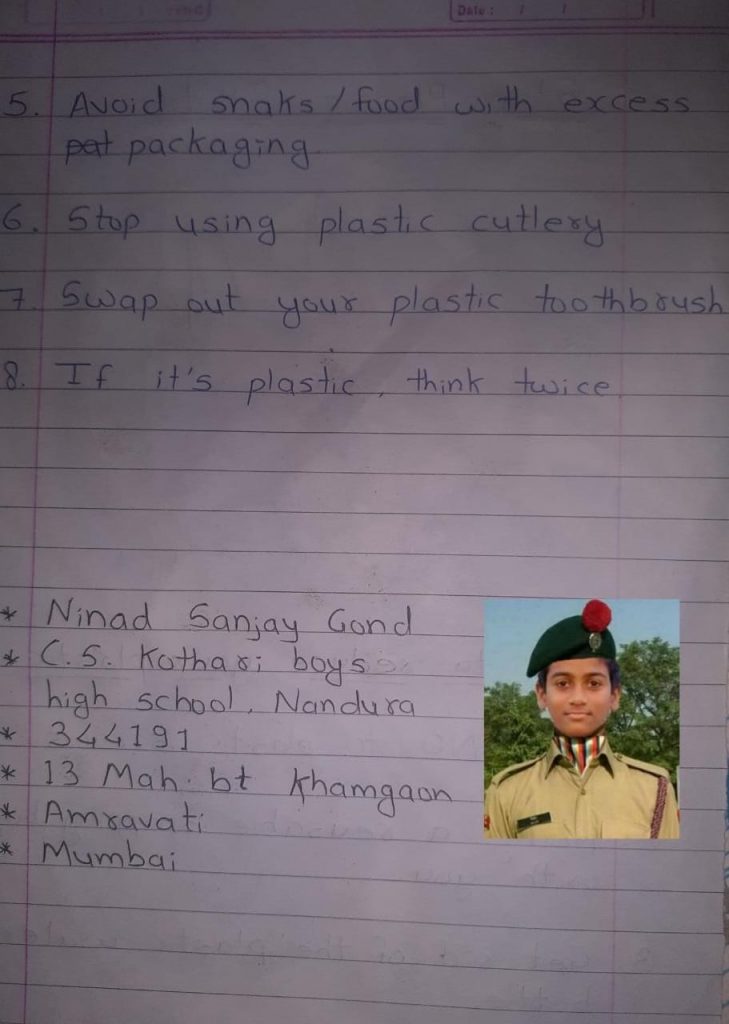 Date : / /
5. Avoid snaks / food with excess
pat packaging
6. Stop using plastic cutlery
7. Swap out your plastic toothbrush
8. If it's plastic, think twice
* Ninad Sanjay Gond
* C.S. Kothari boys
high school, Nandura
* 344191
* 13 Mah. bt Khamgaon
* Amravati
* Mumbai